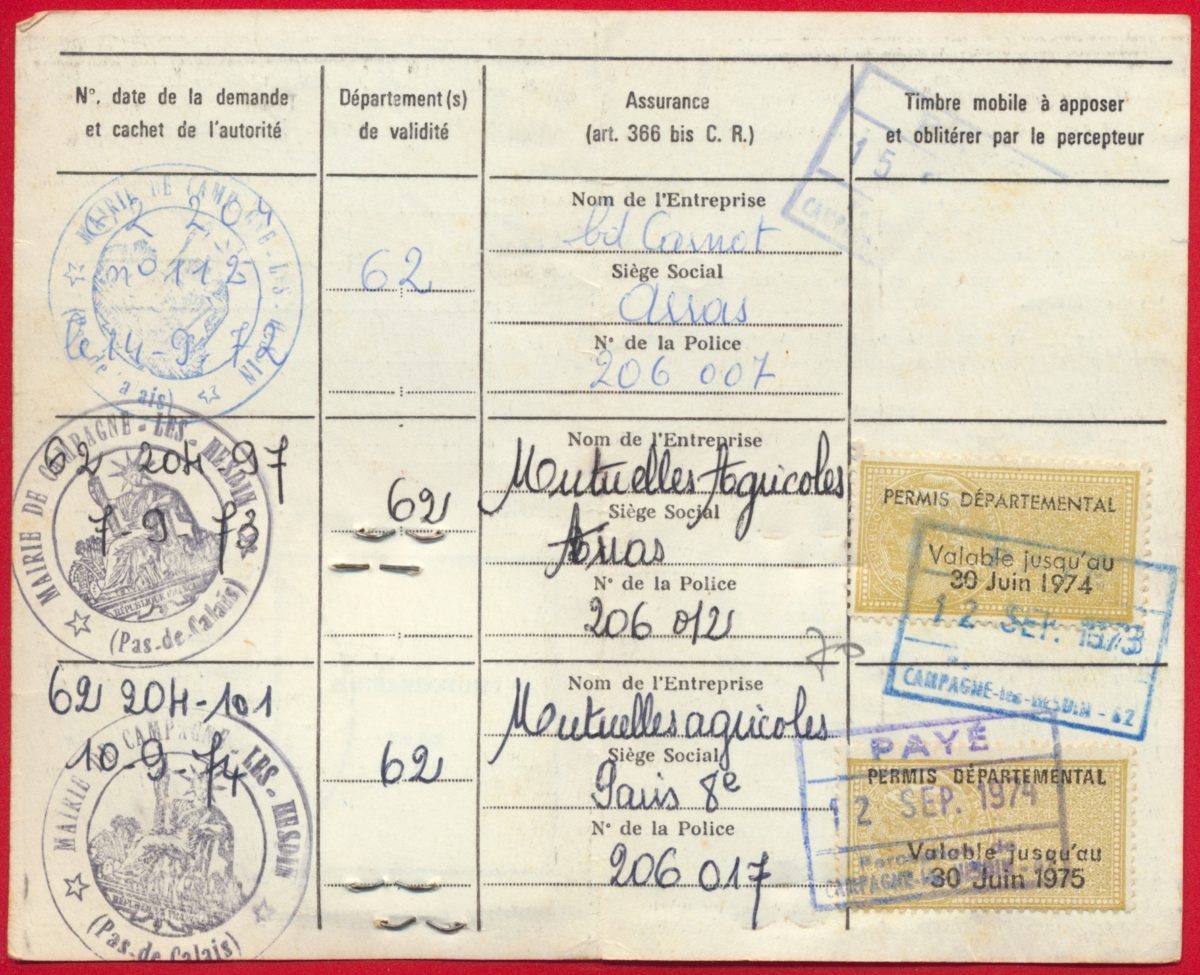 N°, date de la demande
et cachet de l'autorité
Département(s)
de validité
Assurance
(art. 366 bis C. R.)
Timbre mobile à apposer
et oblitérer par le percepteur
15
MAIRIE DE CAMPAGNE-LES-
62 204
n° 112
le 14-9-72
62
Nom de l'Entreprise
bd Carnot
Siège Social
Arras
N° de la Police
206 007
MAIRIE DE CAMPAGNE-LES-HESDIN
(Pas-de-Calais)
RÉPUBLIQUE
62 204 97
7-9-73
62
Nom de l'Entreprise
Mutuelles Agricoles
Siège Social
Arras
N° de la Police
206 012
PERMIS DÉPARTEMENTAL
Valable jusqu'au
30 Juin 1974
12 SEP. 1973
CAMPAGNE-les-HESDIN - 62
62 204-101
10-9 74
MAIRIE CAMPAGNE-LES-HESDIN
(Pas-de-Calais)
62
Nom de l'Entreprise
Mutuelles agricoles
Siège Social
Paris 8e
N° de la Police
206 017
PAYÉ
PERMIS DÉPARTEMENTAL
12 SEP. 1974
Valable jusqu'au
30 Juin 1975